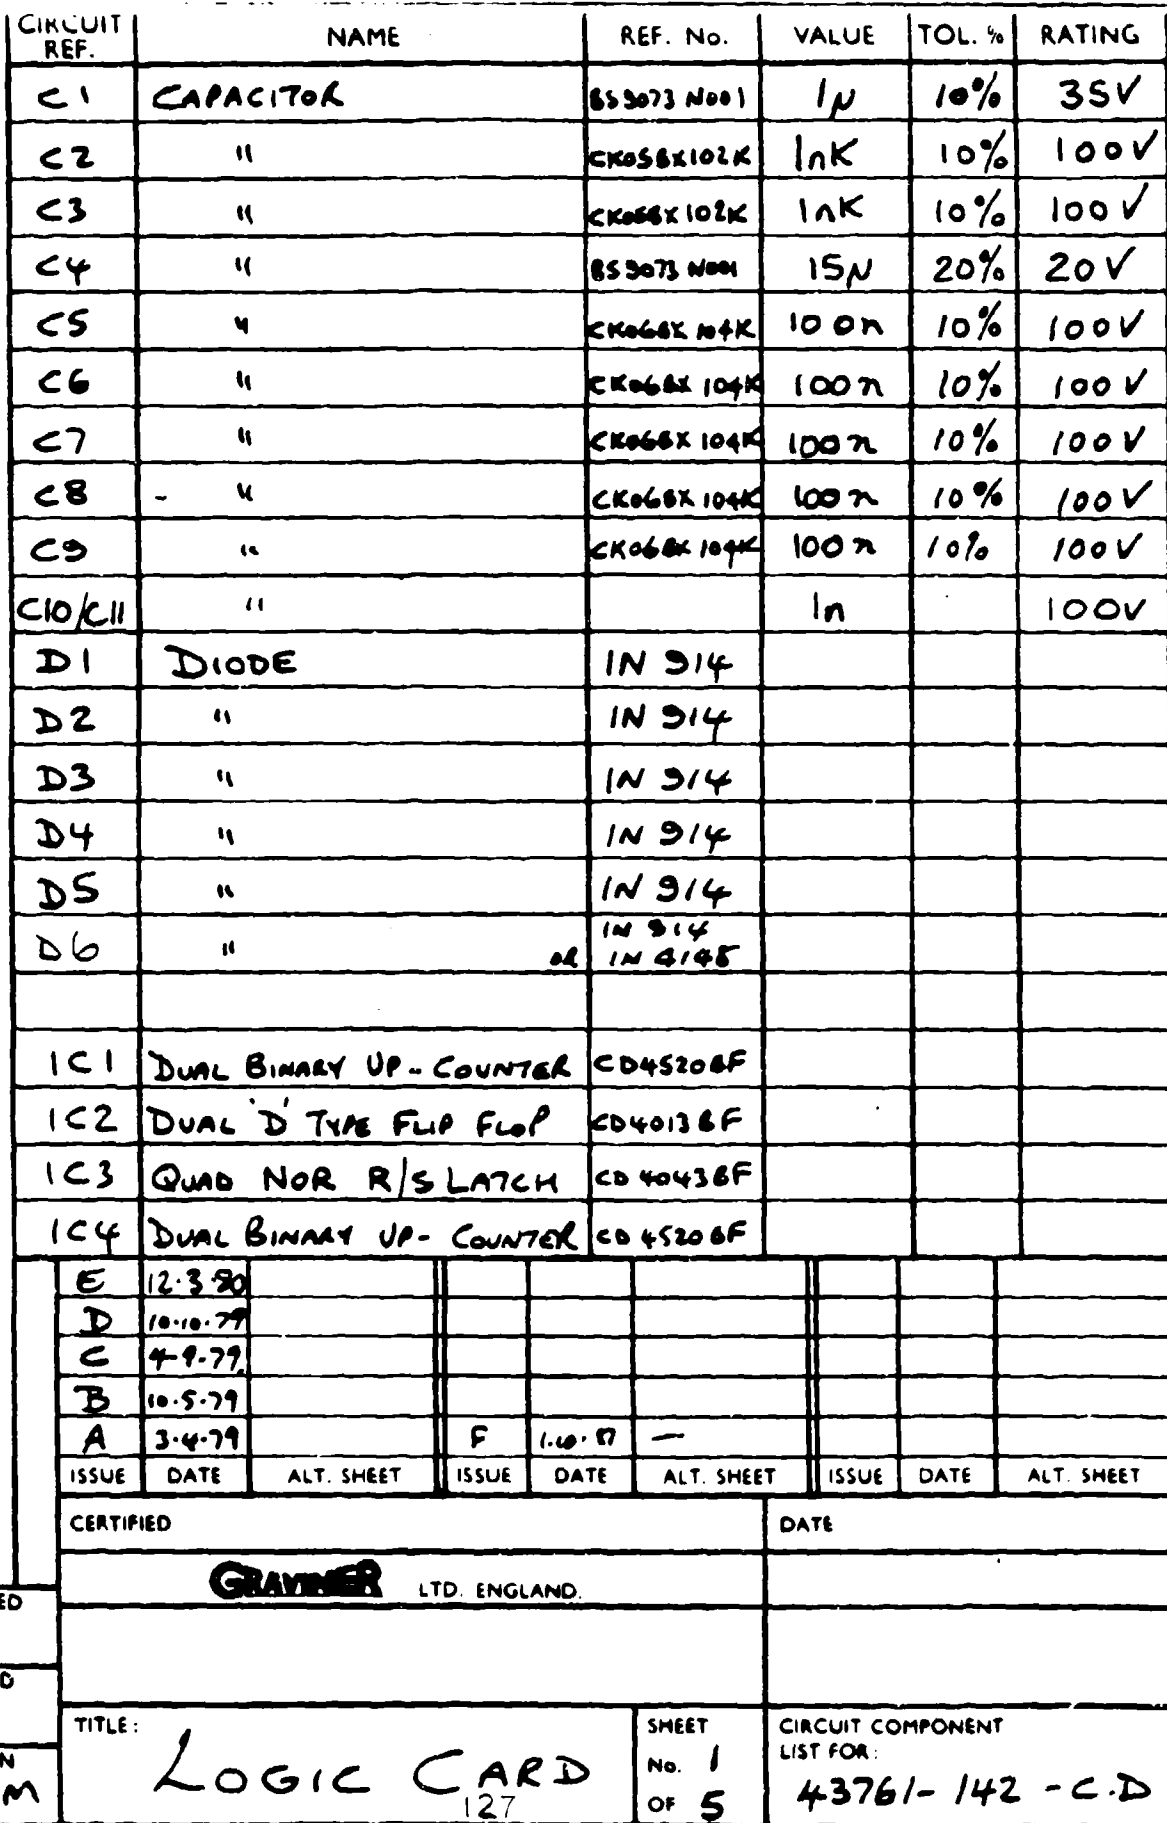 CIRCUIT REF. NAME REF. No. VALUE TOL. % RATING
C1 CAPACITOR BS9073 N001 1µ 10% 35V
C2 " CK05BX102K 1nK 10% 100V
C3 " CK05BX102K 1nK 10% 100V
C4 " BS9073 N001 15µ 20% 20V
C5 " CK06BX 104K 100n 10% 100V
C6 " CK06BX 104K 100n 10% 100V
C7 " CK06BX 104K 100n 10% 100V
C8 " CK06BX 104K 100n 10% 100V
C9 " CK06BX 104K 100n 10% 100V
C10/C11 " 1n 100V
D1 DIODE IN 914
D2 " IN 914
D3 " IN 914
D4 " IN 914
D5 " IN 914
D6 " IN 914
OR IN 4148
IC1 DUAL BINARY UP-COUNTER CD4520BF
IC2 DUAL 'D' TYPE FLIP FLOP CD4013BF
IC3 QUAD NOR R/S LATCH CD4043BF
IC4 DUAL BINARY UP-COUNTER CD4520BF
E 12.3.80
D 10.10.79
C 4-9-79
B 10.5.79
A 3.4.79 F —
ISSUE DATE ALT. SHEET ISSUE DATE ALT. SHEET ISSUE DATE ALT. SHEET
CERTIFIED DATE
GRAVINER LTD. ENGLAND.
ED
D
N
M
TITLE: LOGIC CARD
SHEET No. 1 OF 5
CIRCUIT COMPONENT
LIST FOR:
43761-142-C.D
127